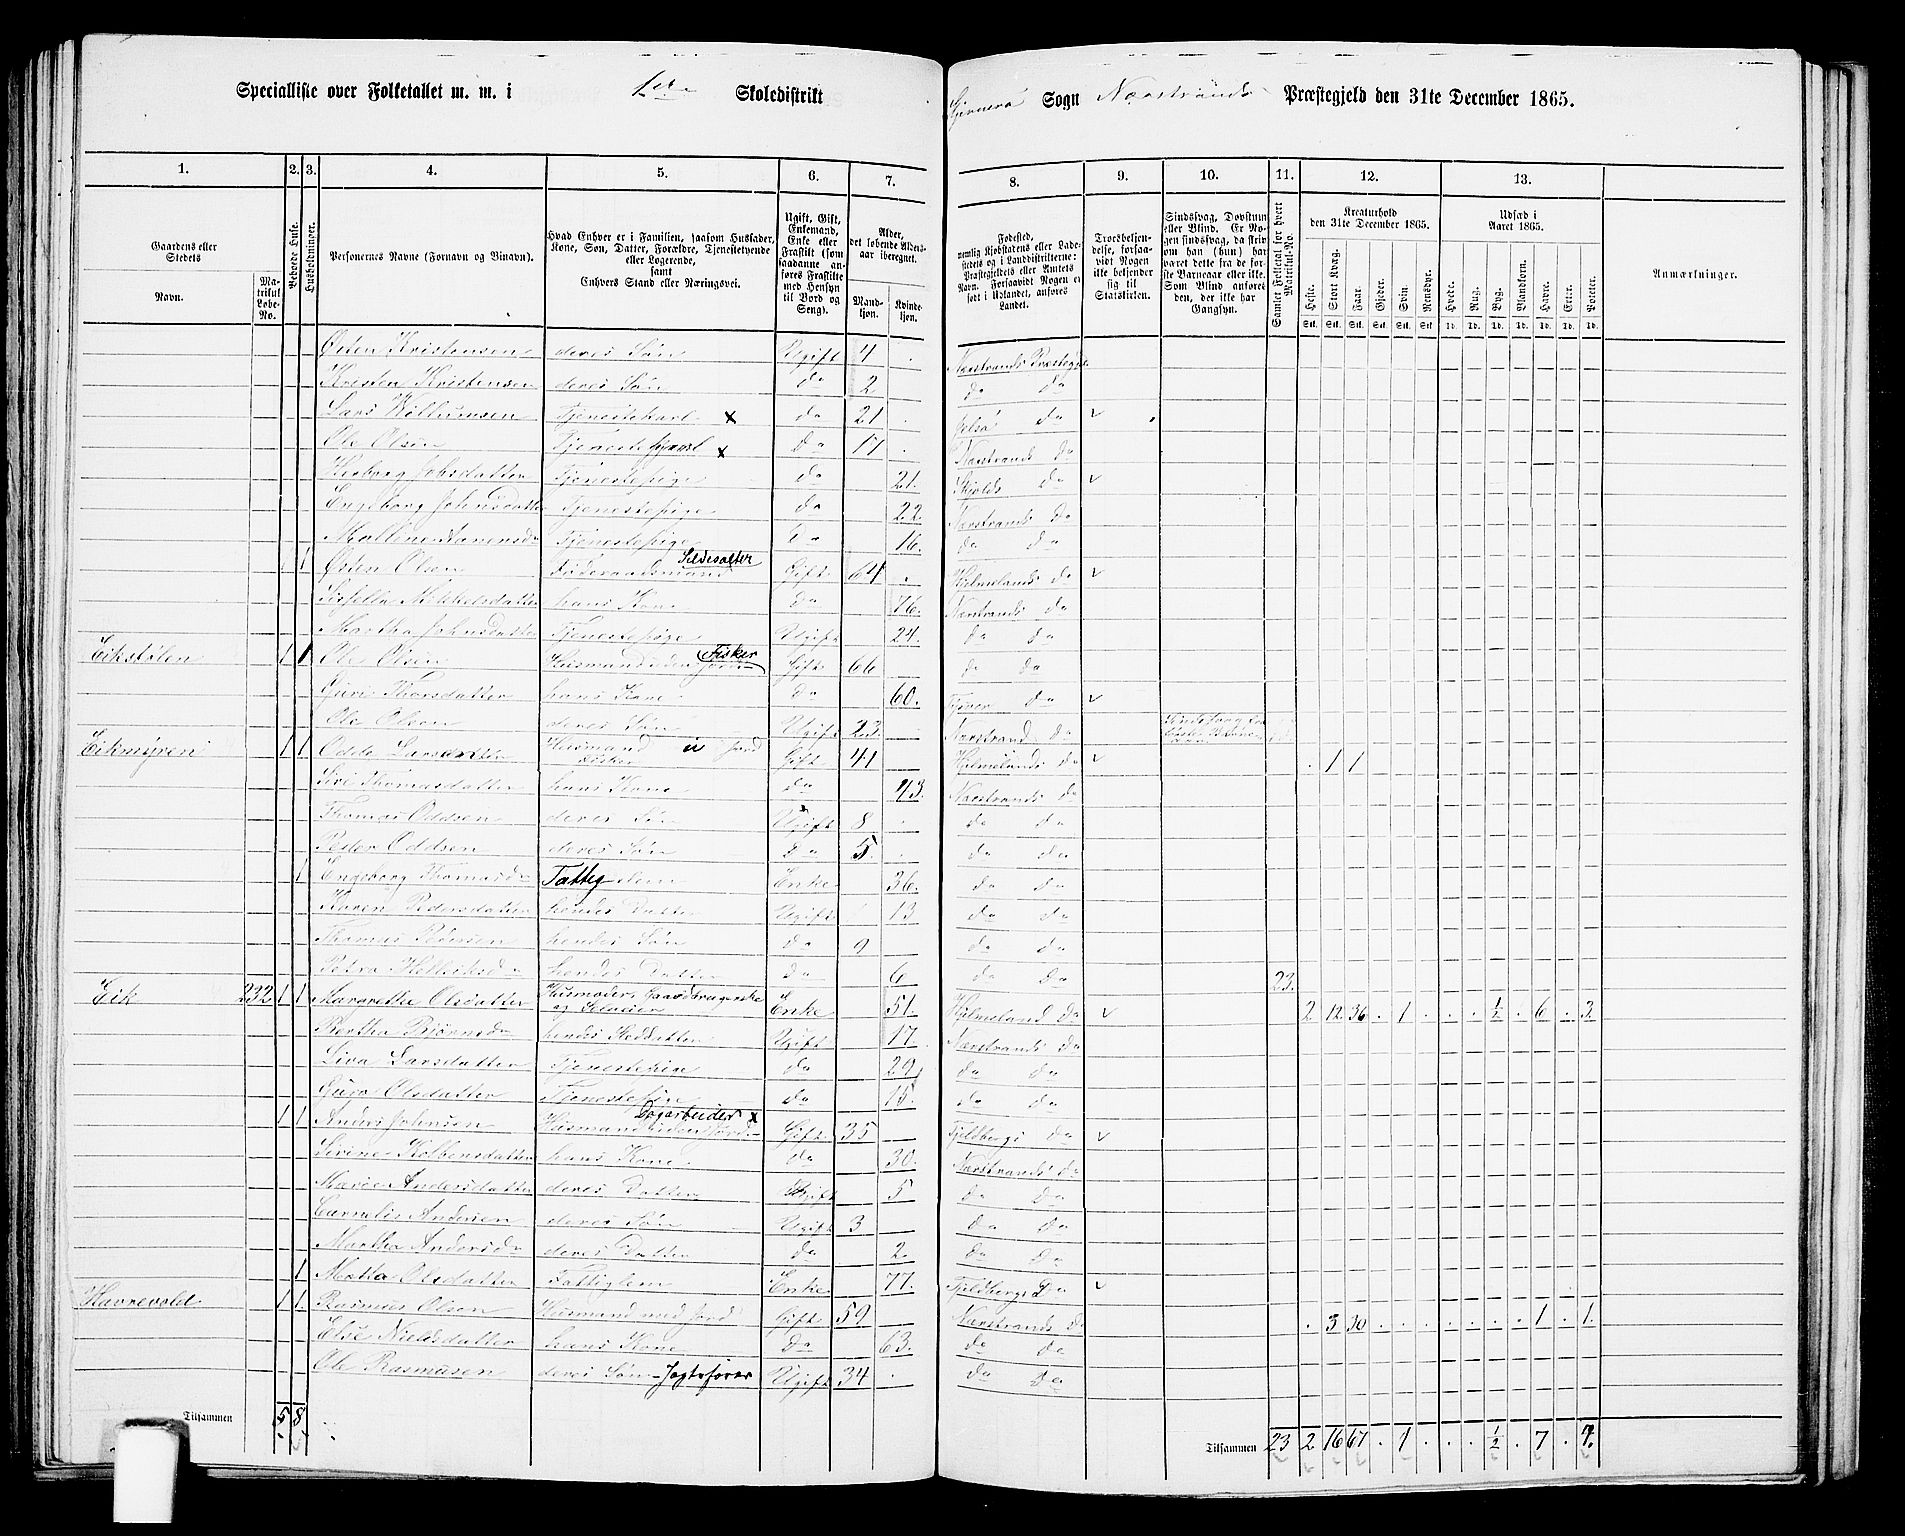 Specialliste over Folketallet m. m. i 1ste Skoledistrikt
Sogn Nærstrands Præstegjeld den 31te December 1865.
1. 2. 3. 4. 5. 6. 7. 8. 9. 10. 11. 12. 13.
Gaardens eller Stedets Navn.
Matrikul Lobe-No.
Beboede Huse.
Husholdninger.
Personernes Navne (Fornavn og Tilnavn).
Hvad Enhver er i Familien, saasom Husfader, Kone, Søn, Datter, Forældre, Tjenestetyende eller Logerende, samt Enhvers Stand eller Næringsvei.
Ugift, Gift, Enkemand, Enke eller Fraskilt (som saadanne anføres Fraskilte med Hensyn til Bord og Seng).
Alder, det løbende Alders-aar iberegnet.
Mandkjøn. Kvindekjøn.
Fødested, nemlig Kjøbstadens eller Ladestedets og i Landdistrikterne: Præstegjeldets eller Amtets Navn. Forsaavidt Nogen er født i Udlandet, anføres Landet.
Troesbekjendelse, forsaavidt Nogen ikke bekjender sig til Statskirken.
Sindssvag, Døvstum eller Blind. Er Nogen sindssvag, da skriv om han (hun) har været dette fra de første Barneaar eller ikke. Som Blind anføres den, der ikke har Gangsyn.
Samlet Folketal for hvert Matrikul-No.
Kreaturhold den 31te December 1865.
Heste. Stort Kvæg. Faar. Gjeder. Svin. Rensdyr.
Udsæd i Aaret 1865.
Hvede. Rug. Byg. Blandkorn. Havre. Erter. Poteter.
Anmærkninger.
Østen Kristensen deres Søn Ugift 4 Nærstrands Præstegje
Kristen Kristensen deres Søn do 2 do do
Lars Villumsen Tjenestekarl x do 21 Jelsø do
Ole Olsen Tjeneste x do 17 Nærstrands do
Johsdatter Tjenestepige do 21. Skjolds do
Engeborg Johnsdatter Tjenestepige do 22. Nærstrands do
Malline Tjenestepige do 16. do do
1 Østen Olsen Føderaadsmand Sildesalter Gift 64 Hjelmelands do
Sissella Mikkelsdatter hans Kone do 76. Nærstrands do
Martha Johnsdatter Tjenestepige Ugift 24. do do
Eikstølen 1 1 Ole Olsen Husmand uden Jord Fisker Gift 66 do do
Guri Thorsdatter hans Kone do 60. do
Ole Olsen deres Søn Ugift 23. Nærstrand do
Eikmyren 1 1 Odde Husmand u Jord Fisker Gift 41 Hjelmelands do 1 1
Siri Thomasdatter hans Kone do 43. Nærstrands do
Thomas Oddsen deres Søn Ugift 8 do do
Peder Oddsen deres Søn do 5. do do
1 Engeborg Thomasd Fattiglem Enke 36. do do
Karen Pedersdatter hendes Datter Ugift 13 do do
Thomas Pedersen hendes Søn do 9 do do
Petra hendes Datter do 6 do do 23.
Eik 232 1 1 Margrethe Olsdatter Husmoder, Gaardbrugerske og Selveier Enke 51. Hjelmeland do 2 12 36 . 1 . . . 1/2 . 6 . 3
Bertha Bjørnsd hendes Steddatter Ugift 17 Nærstrands do
Liva Larsdatter Tjenestepige do 29 do do
Guro Olsdatter Tjenestepige do 15. do do
1 1 Anders Johnsen Husmand uden Jord Dagarbeider x Gift 35 Fjeldbergs do
Serine Kolbensdatter hans Kone do 30. Nærstrands do
Marie Andersdatter deres Datter Ugift 5 do do
Cornelis Andersen deres Søn Ugift 3 do do
Martha Andersd deres Datter do 2. do do
1 Metta Olsdatter Fattiglem Enke 77. Fjeldbergs do
Havrevold 1 1 Rasmus Olsen Husmand med Jord Gift 59 Nærstrands do . 3 30 1 . 1.
Else Nielsdatter hans Kone do 63. do do
Ole Rasmusen deres Søn Jagtefører Ugift 34 do do
Tilsammen 5 8
Tilsammen 23 2 16 67 . 1 . . . 1/2 . 7 . 4